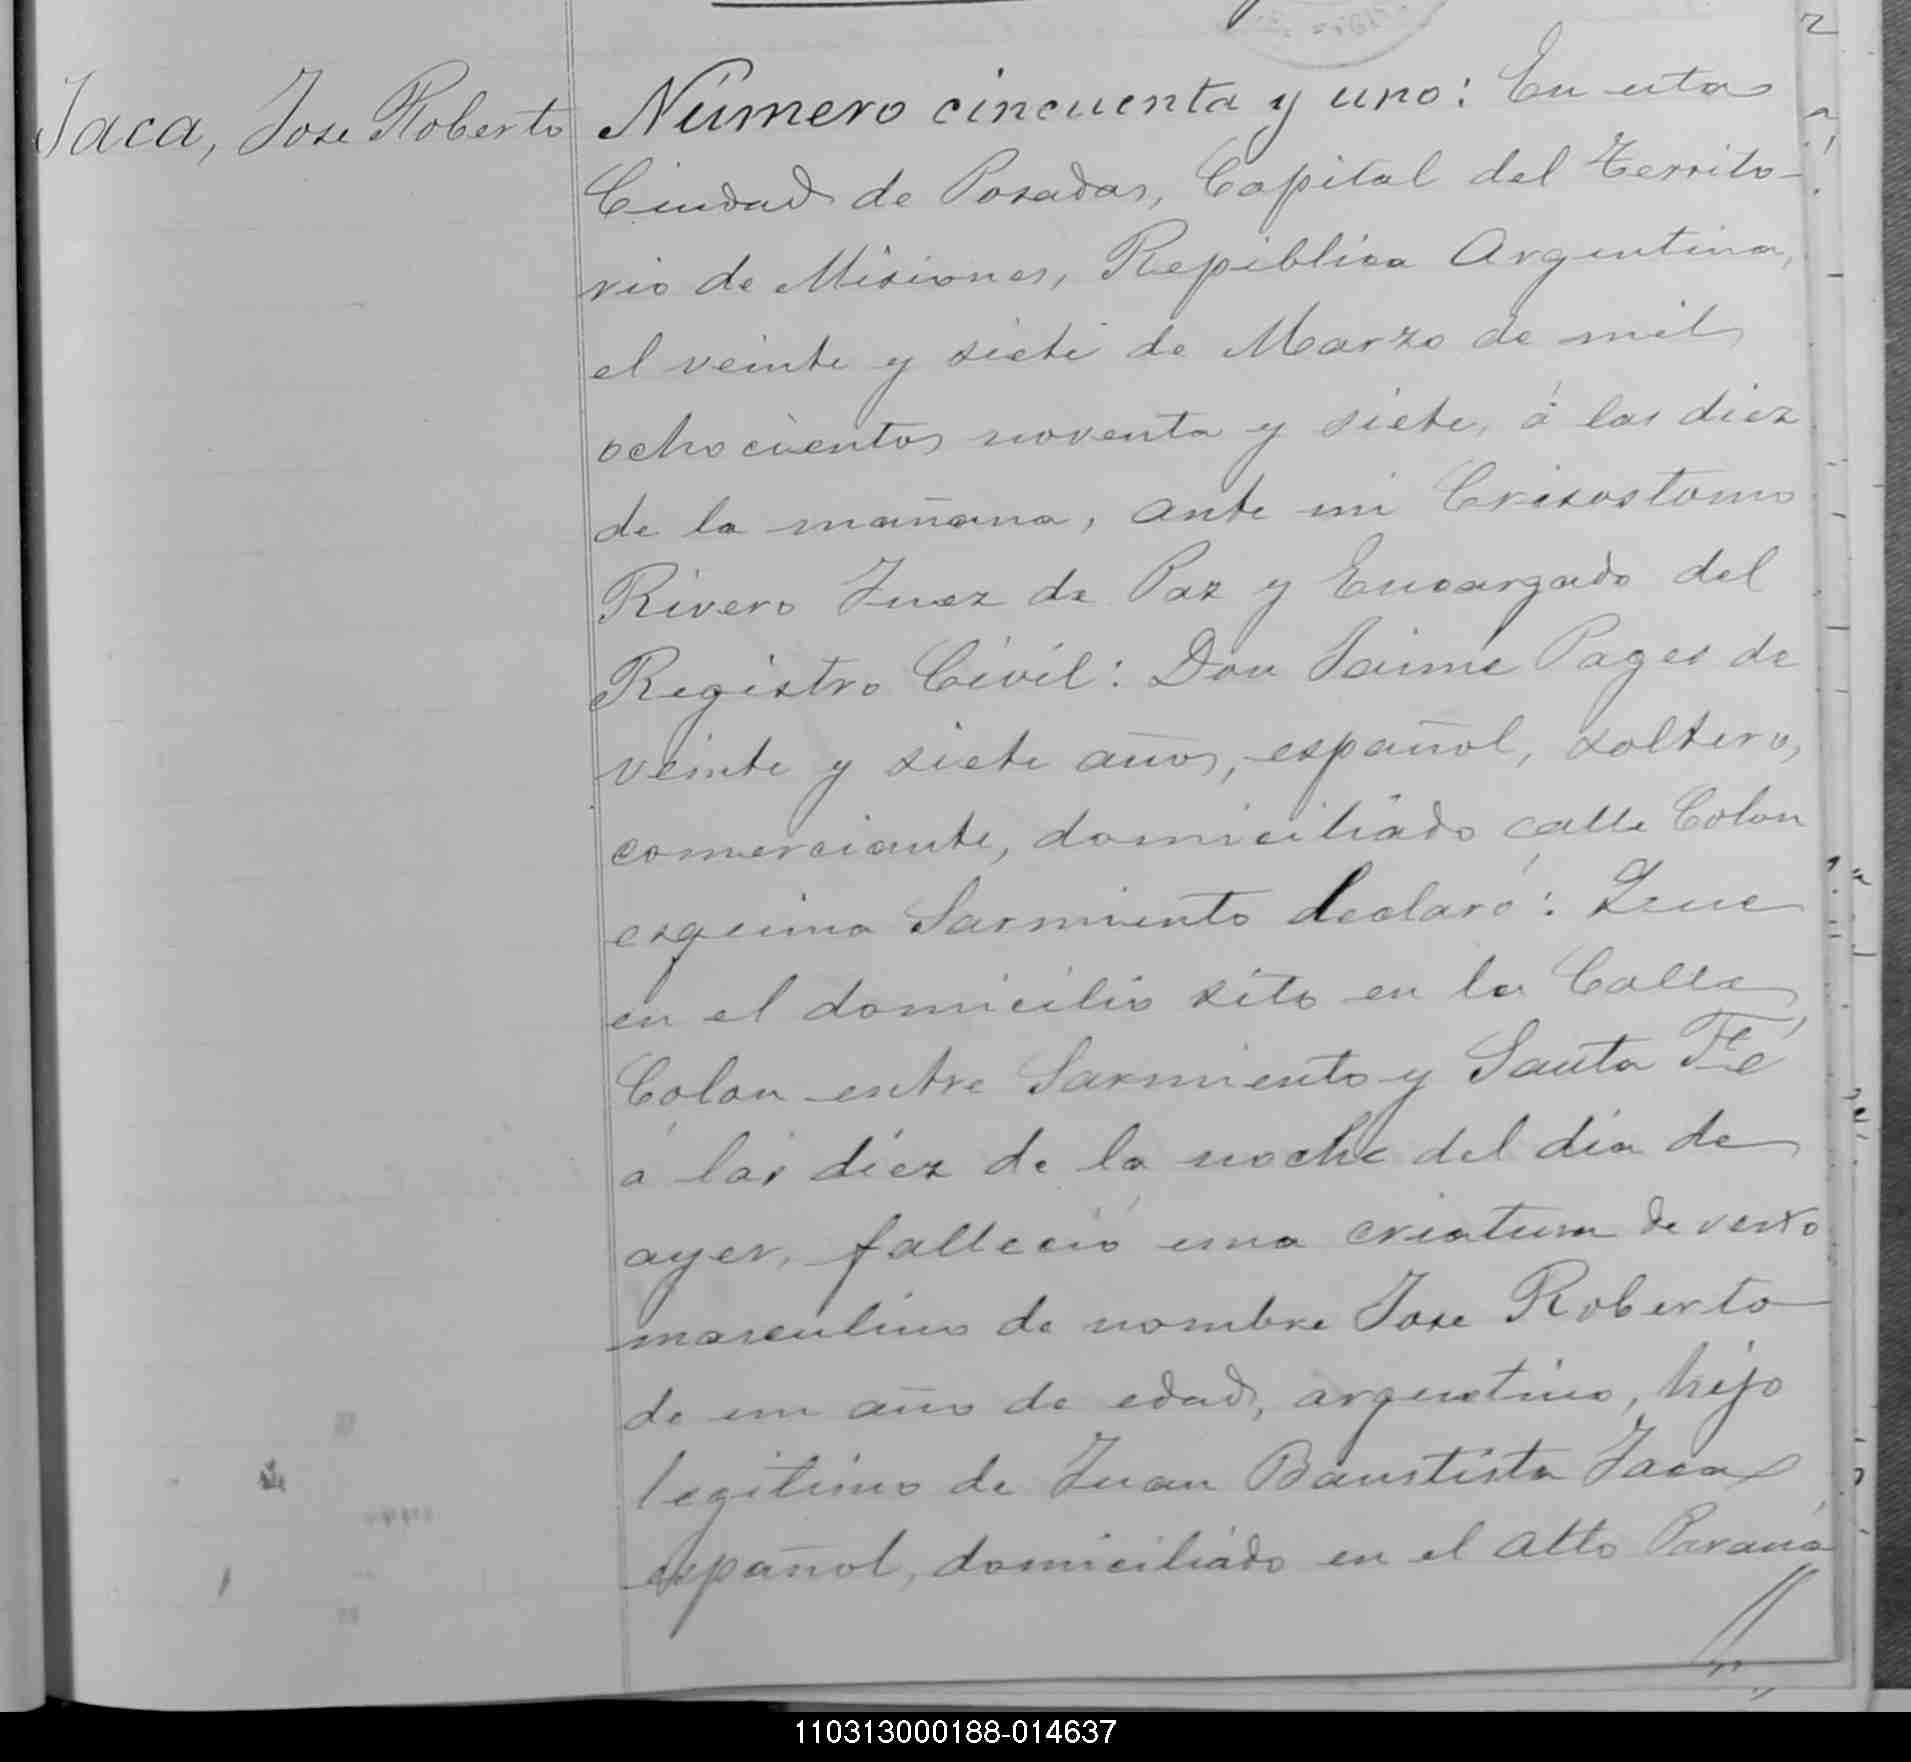 Jaca, Jose Roberto
Número cincuenta y uno: En esta
Ciudad de Posadas, Capital del Territo-
rio de Misiones, República Argentina,
el veinte y siete de Marzo de mil
ochocientos noventa y siete, á las diez
de la mañana, ante mi Crisostomo
Rivero Juez de Paz y Encargado del
Registro Civil: Don Jaime Pages de
veinte y siete años, español, soltero,
comerciante, domiciliado calle Colon
esquina Sarmiento declaró: Que
en el domicilio sito en la Calle
Colon entre Sarmiento y Santa Fé
á las diez de la noche del dia de
ayer, falleció una criatura de sexo
masculino de nombre Jose Roberto
de un año de edad, argentino, hijo
legitimo de Juan Baustista Jaca
español, domiciliado en el Alto Paraná
110313000188-014637